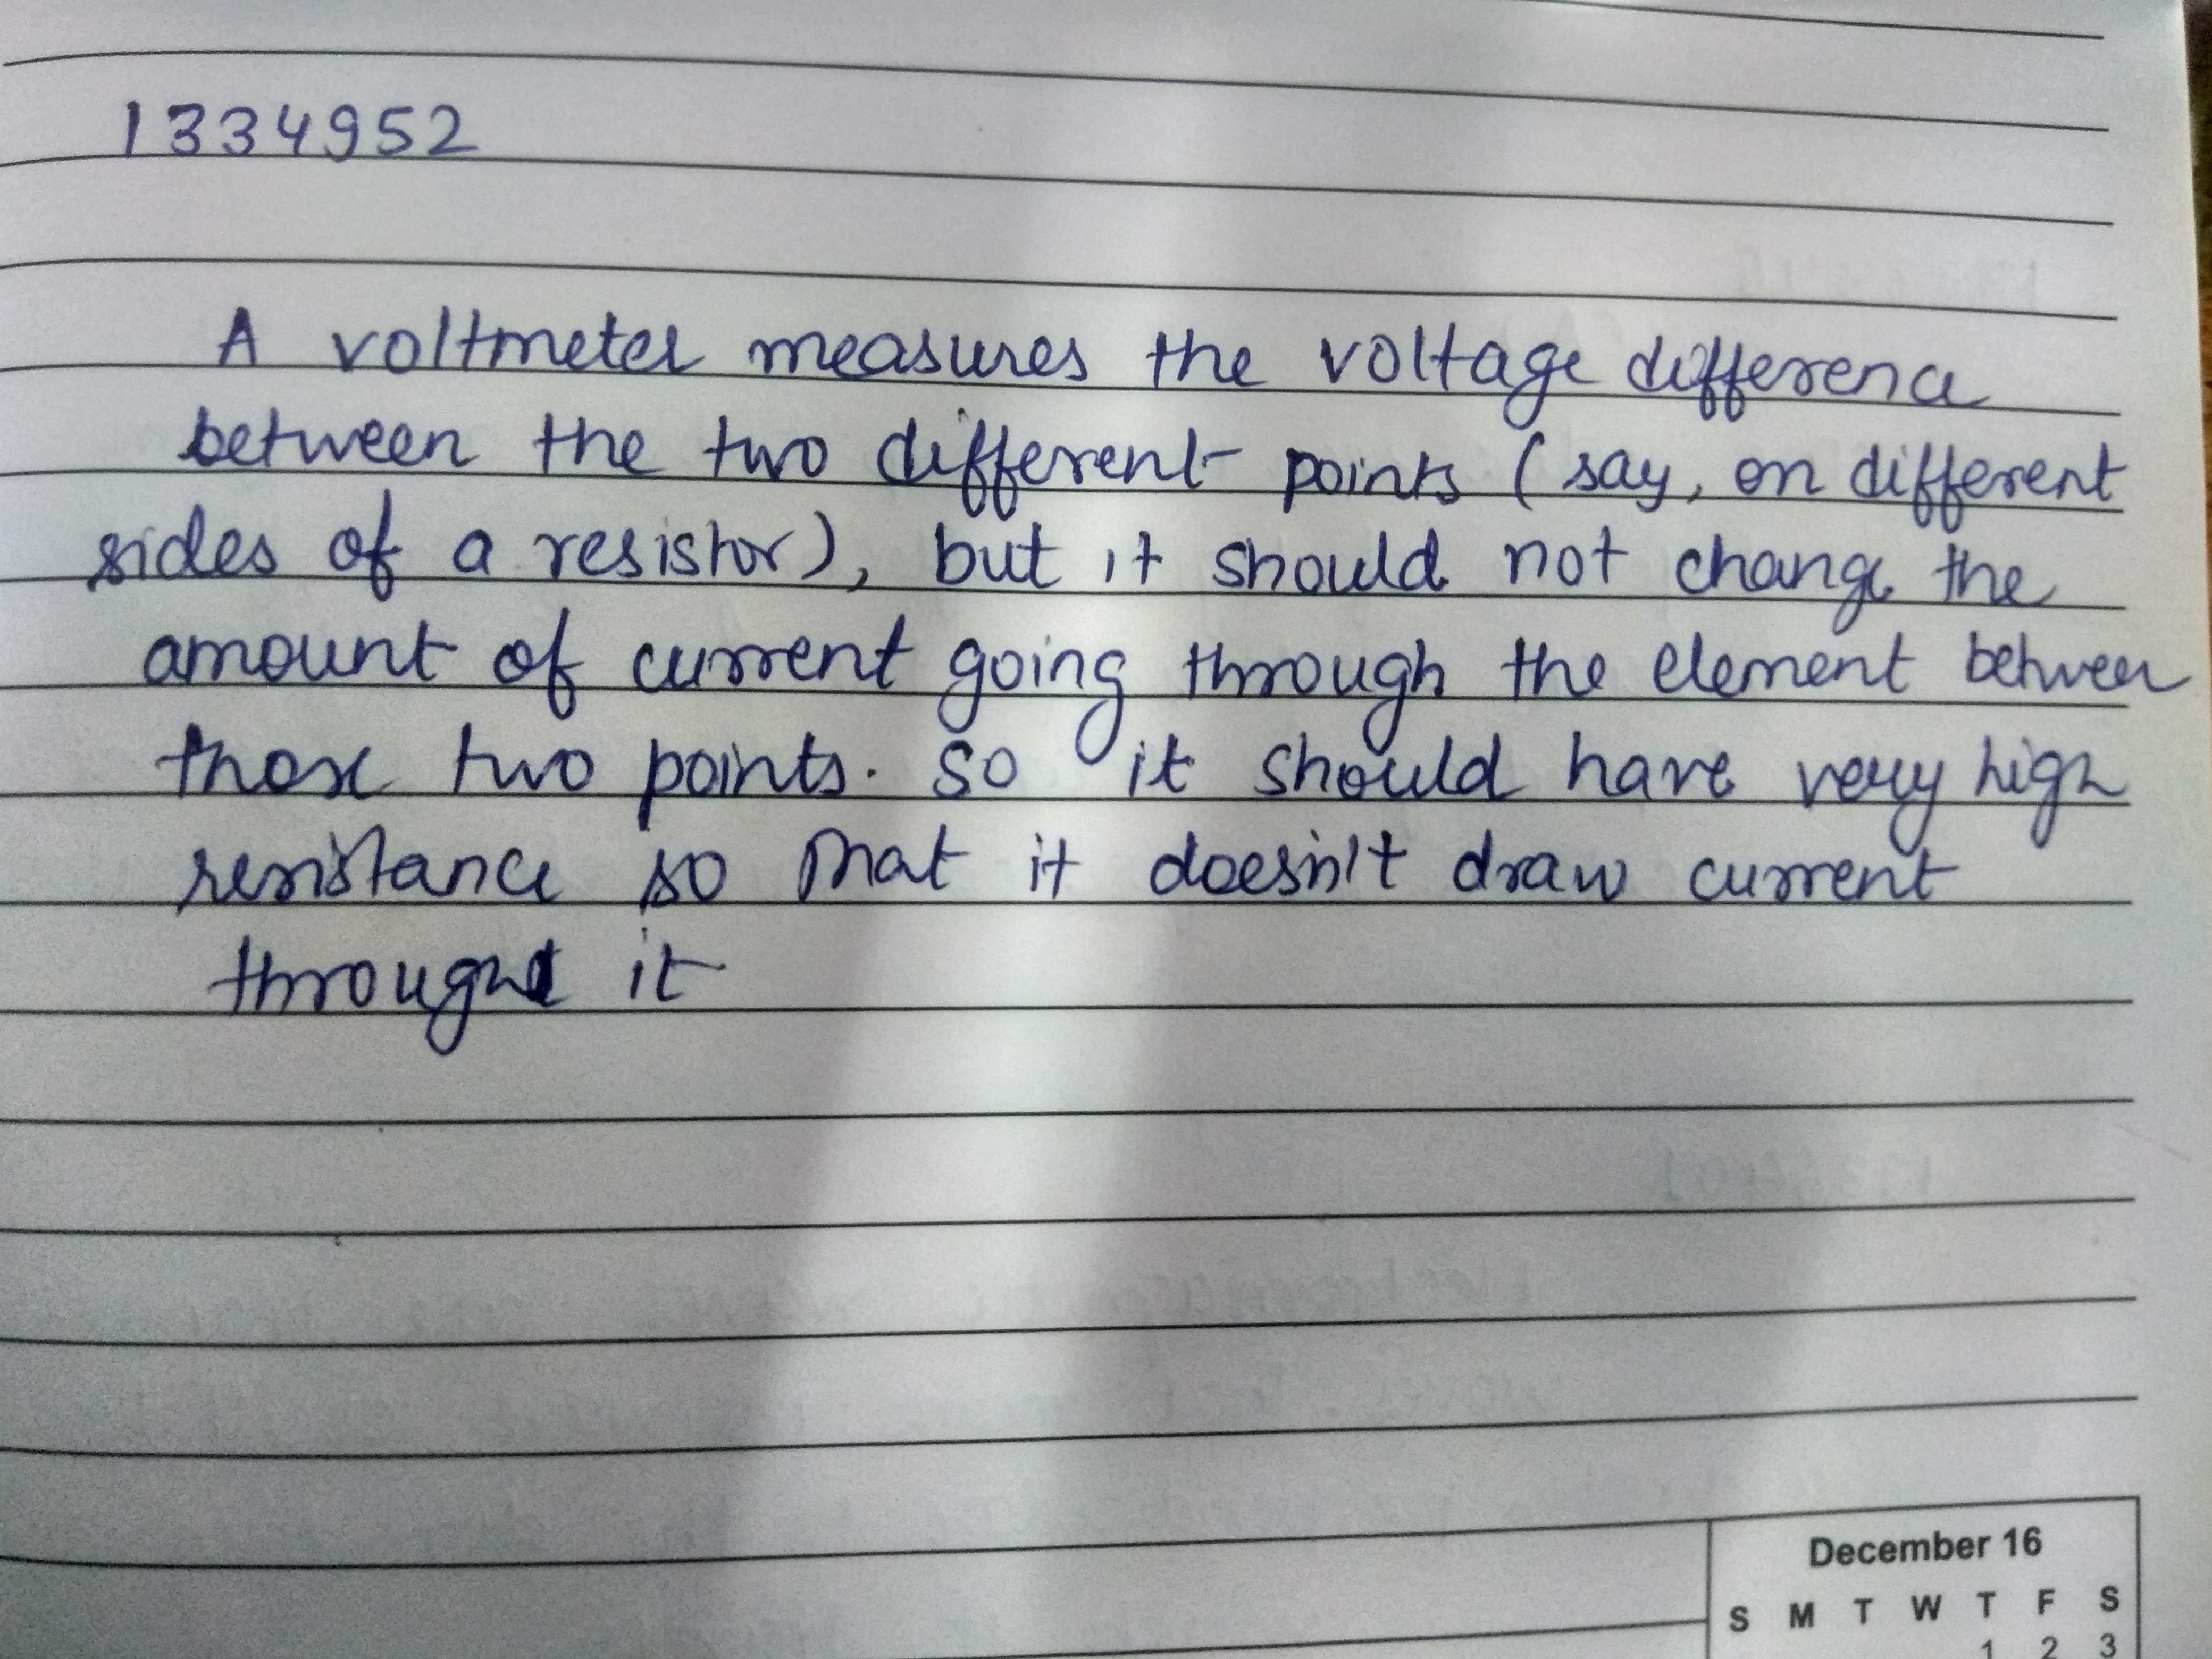 1334952
A voltmeter measures the voltage difference
between the two different points (say, on different
sides of a resistor), but it should not change the
amount of current going through the element between
those two points. So it should have very high
resistance so that it doesn't draw current
through it
December 16
S M T W T F S
1 2 3